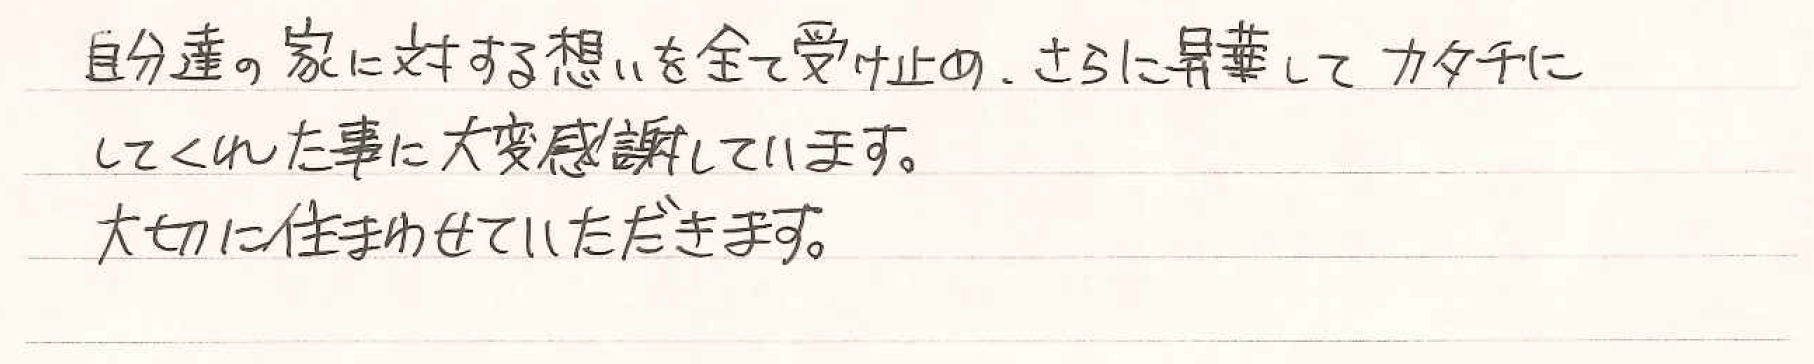 自分達の家に対する想いを全て受け止め、さらに昇華してカタチに
してくれた事に大変感謝しています。
大切に住まわせていただきます。